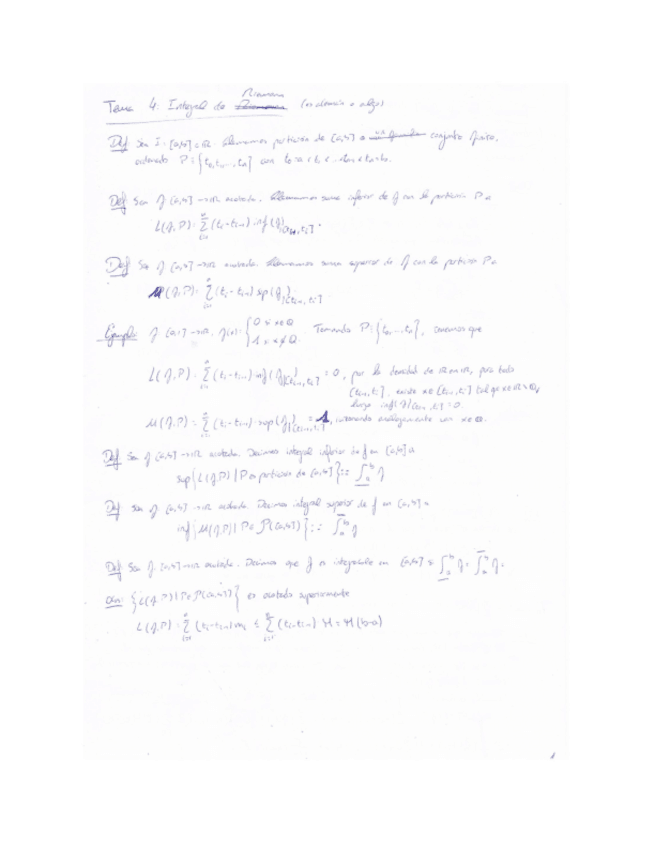 Riemann
Tema 4: Integral de (o algo)
Def Sea I=[a,b]⊂ℝ. Llamamos partición de [a,b] a conjunto finito,
ordenado P={t₀,t₁,...,tₙ} con t₀=a<t₁<...<tₙ=b.
Def Sea f:[a,b]→ℝ acotada. Llamamos suma inferior de f con la partición P a
L(f,P)=∑ⁿᵢ₌₁(tᵢ-tᵢ₋₁)inf(f)|[tᵢ₋₁,tᵢ].
Def Sea f:[a,b]→ℝ acotada. Llamamos suma superior de f con la partición P a
U(f,P)=∑ⁿᵢ₌₁(tᵢ-tᵢ₋₁)sup(f)|[tᵢ₋₁,tᵢ]
Ejemplo: f:[0,1]→ℝ, f(x)={0 si x∈ℚ
1 si x∉ℚ. Tomando P={t₀,...,tₙ}, tenemos que
L(f,P)=∑ⁿᵢ₌₁(tᵢ-tᵢ₋₁)inf(f)|[tᵢ₋₁,tᵢ]=0, por la densidad de en ℝ, para todo
[tᵢ₋₁,tᵢ], existe x∈[tᵢ₋₁,tᵢ] tal que
luego inf(f)|[tᵢ₋₁,tᵢ]=0.
U(f,P)=∑ⁿᵢ₌₁(tᵢ-tᵢ₋₁)sup(f)|[tᵢ₋₁,tᵢ]=1, tomando análogamente un x∉ℚ.
Def Sea f:[a,b]→ℝ acotada. Decimos integral inferior de f en [a,b] a
sup{L(f,P)|P es partición de [a,b]}=:∫ᵇₐ f
Def Sea f:[a,b]→ℝ acotada. Decimos integral superior de f en [a,b] a
inf{U(f,P)|P∈P([a,b])}=:∫ᵇₐ f
Def Sea f:[a,b]→ℝ acotada. Decimos que f es integrable en [a,b] si ∫ᵇₐ f=∫ᵇₐ f.
Obs: {L(f,P)|P∈P([a,b])} es acotado superiormente
L(f,P)=∑ⁿᵢ₌₁(tᵢ-tᵢ₋₁)mᵢ≤∑ⁿᵢ₌₁(tᵢ-tᵢ₋₁)M=M(b-a)
1